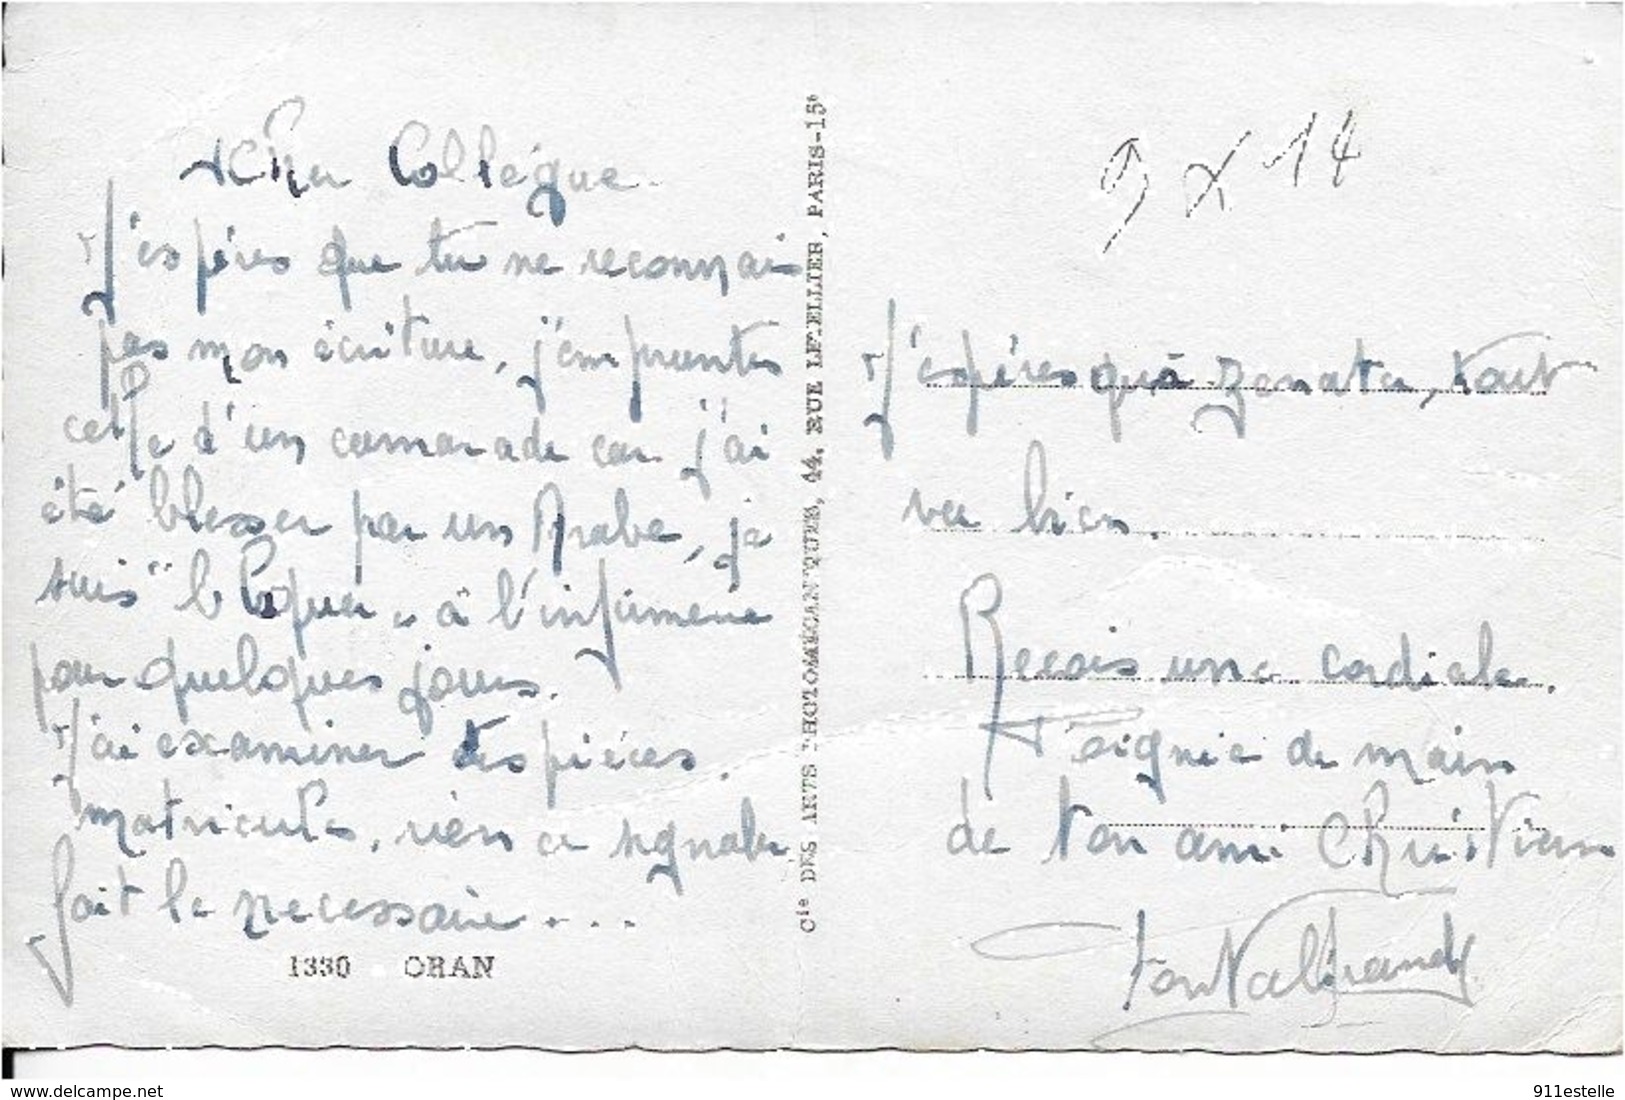 Cher Collègue
J'espères que tu ne reconnais
pas mon écriture, j'empruntes
celle d'un camarade car j'ai
été blesser par un Arabe, je
suis "le Coquer" à l'infirmerie
pour quelques jours.
J'ai examiner tes pièces
matricules, rien a signaler
fait le necessaire...
1330 ORAN
Cie DES ARTS PHOTOMÉCANIQUES, 44, RUE LETELLIER, PARIS-15e
9 X 14
J'espères qu'à Zenata, tout
va bien.
Recois une cordiale
Poignie de main
de ton ami Christian
delcampe.net
911estelle